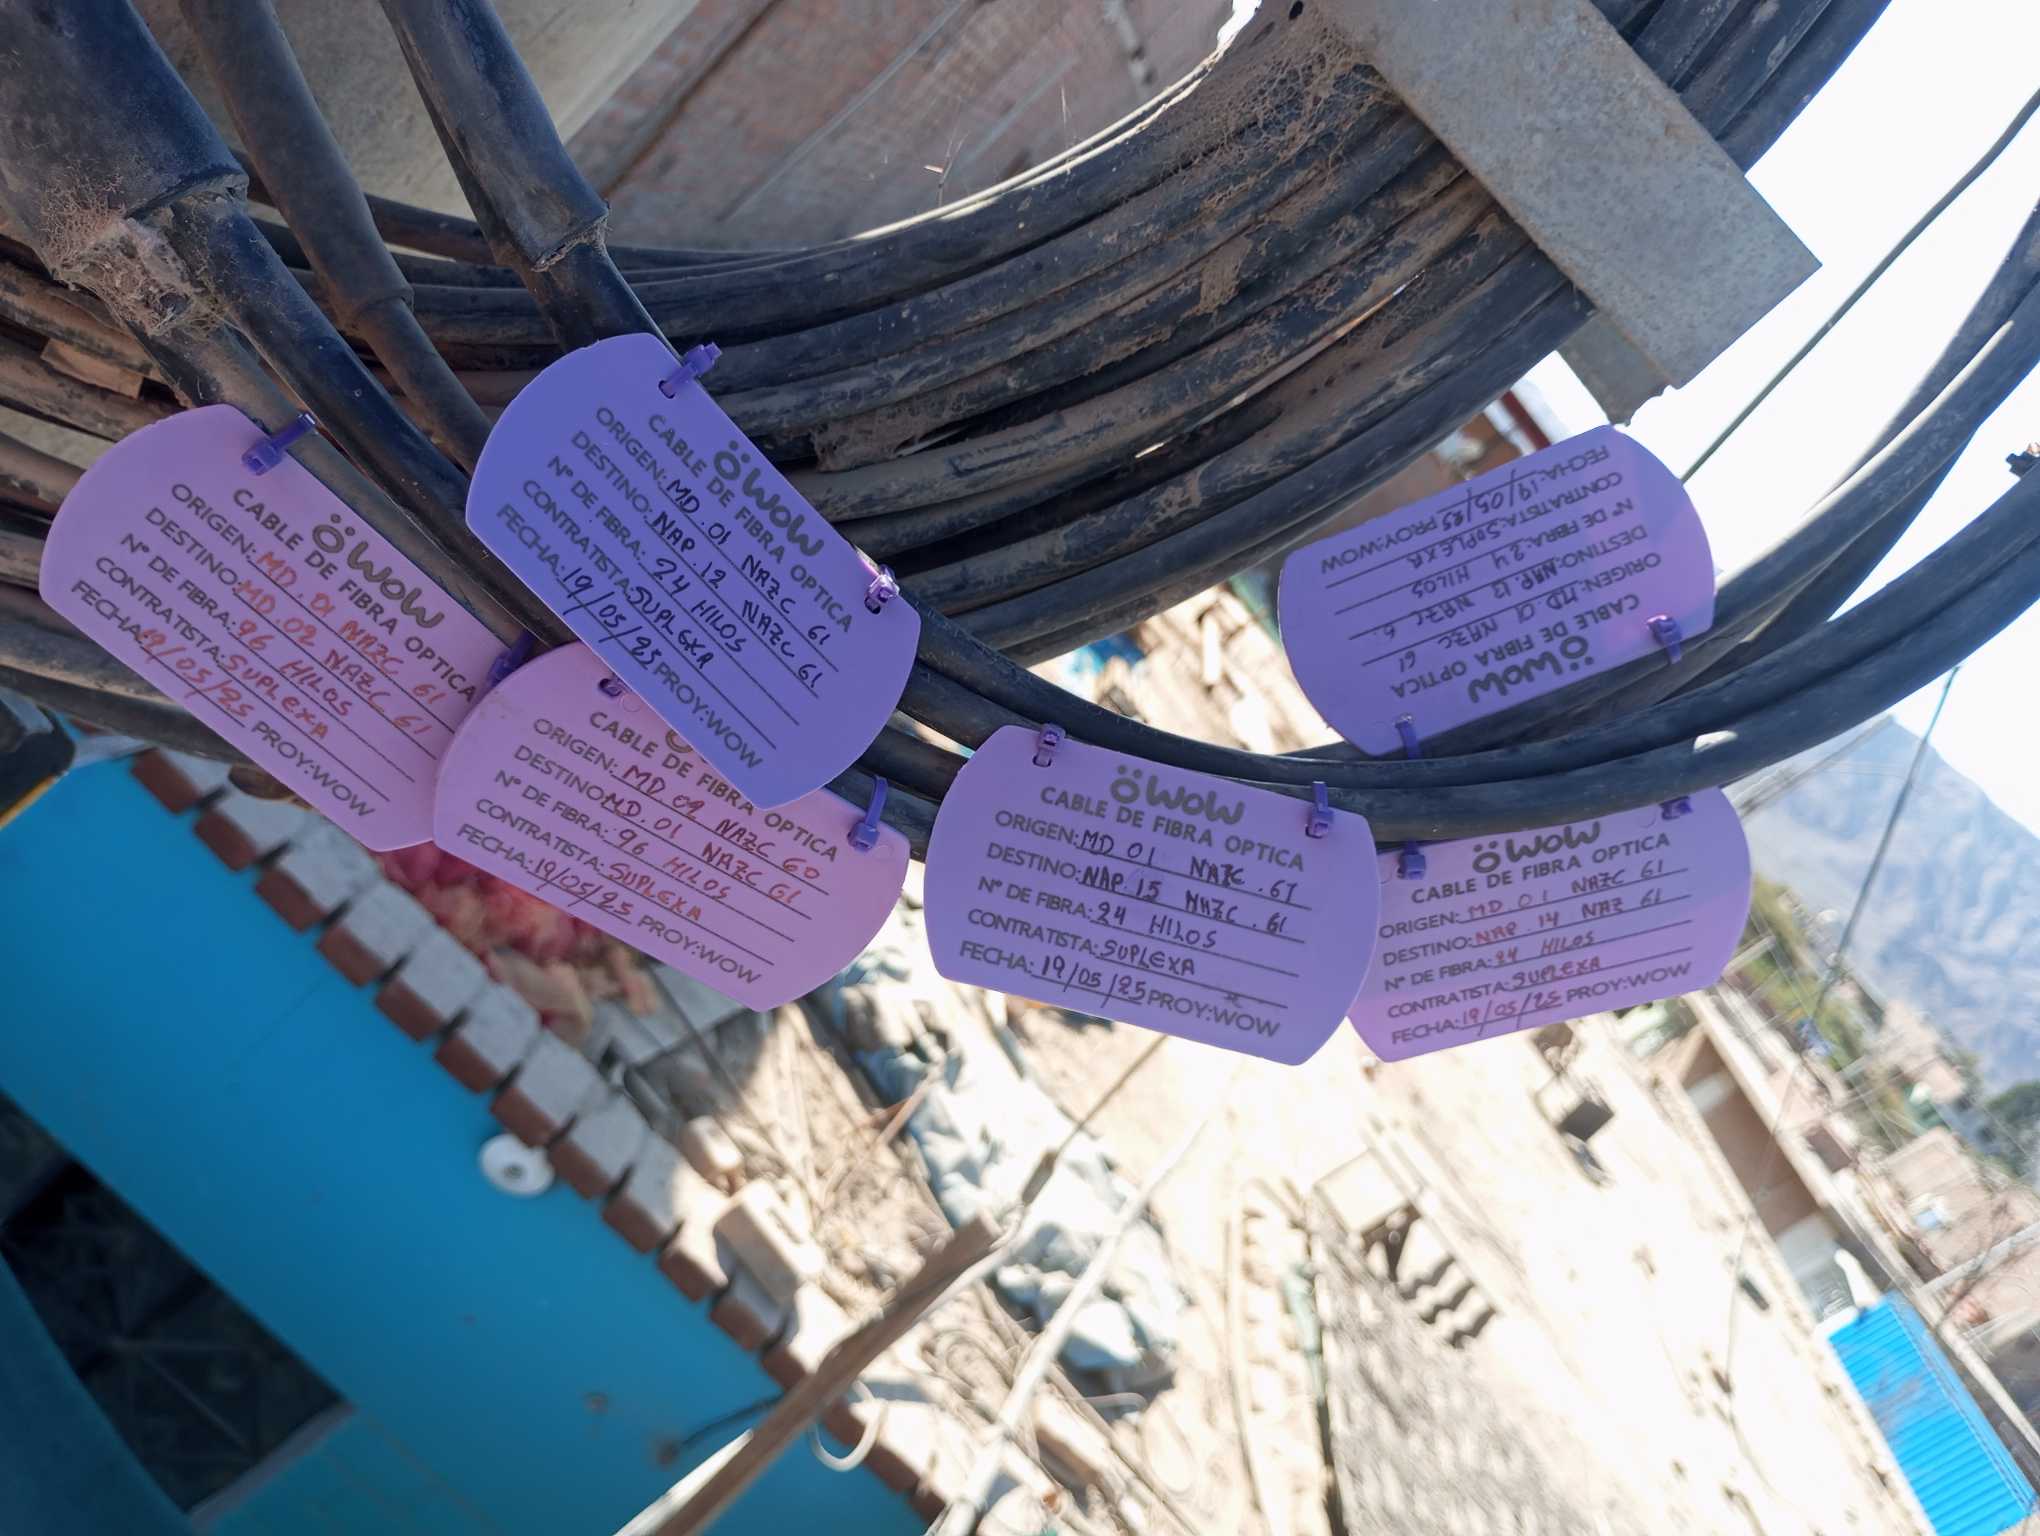 WOW
CABLE DE FIBRA OPTICA
ORIGEN: MD. 01 NAZC 61
DESTINO: MD. 02 NAZC 61
N° DE FIBRA: 96 HILOS
CONTRATISTA: SUPLEXA
FECHA: 19/05/25 PROY:WOW
WOW
CABLE DE FIBRA OPTICA
ORIGEN: MD. 01 NAZC 61
DESTINO: NAP. 12 NAZC 61
N° DE FIBRA: 24 HILOS
CONTRATISTA: SUPLEXA
FECHA: 19/05/25 PROY:WOW
CABLE DE FIBRA OPTICA
ORIGEN: MD 02 NAZC 60
DESTINO: MD. 01 NAZC 61
N° DE FIBRA: 96 HILOS
CONTRATISTA: SUPLEXA
FECHA: 19/05/25 PROY:WOW
WOW
CABLE DE FIBRA OPTICA
ORIGEN: MD 01 NAZC .61
DESTINO: NAP. 15 NAZC .61
N° DE FIBRA: 24 HILOS
CONTRATISTA: SUPLEXA
FECHA: 19/05/25 PROY:WOW
WOW
CABLE DE FIBRA OPTICA
ORIGEN: MD 01 NAZC 61
DESTINO: NAP. 14 NAZ 61
N° DE FIBRA: 24 HILOS
CONTRATISTA: SUPLEXA
FECHA: 19/05/25 PROY:WOW
WOW
CABLE DE FIBRA OPTICA
ORIGEN: MD 01 NAZC 61
DESTINO: NAP. 13 NAZC 6
N° DE FIBRA: 24 HILOS
CONTRATISTA: SUPLEXA
FECHA: 19/05/25 PROY:WOW